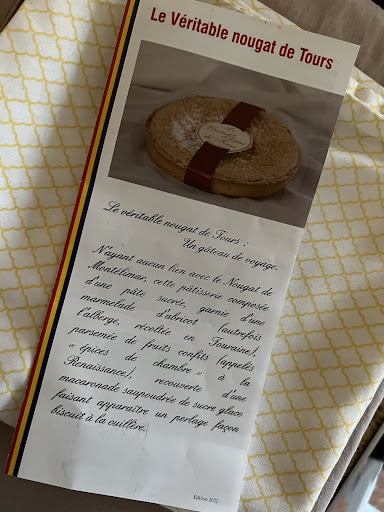 Le Véritable nougat de Tours
Le véritable nougat de Tours :
Un gâteau de voyage.
N'ayant aucun lien avec le Nougat de
Montélimar, cette pâtisserie composée
d'une pâte sucrée, garnie d'une
marmelade d'abricot (autrefois
l'alberge, récoltée en Touraine),
parsemée de fruits confits (appelés
« épices de chambre » à la
Renaissance), recouverte d'une
macaronade saupoudrée de sucre glace
faisant apparaître un perlage façon
biscuit à la cuillère.
Edition 2022